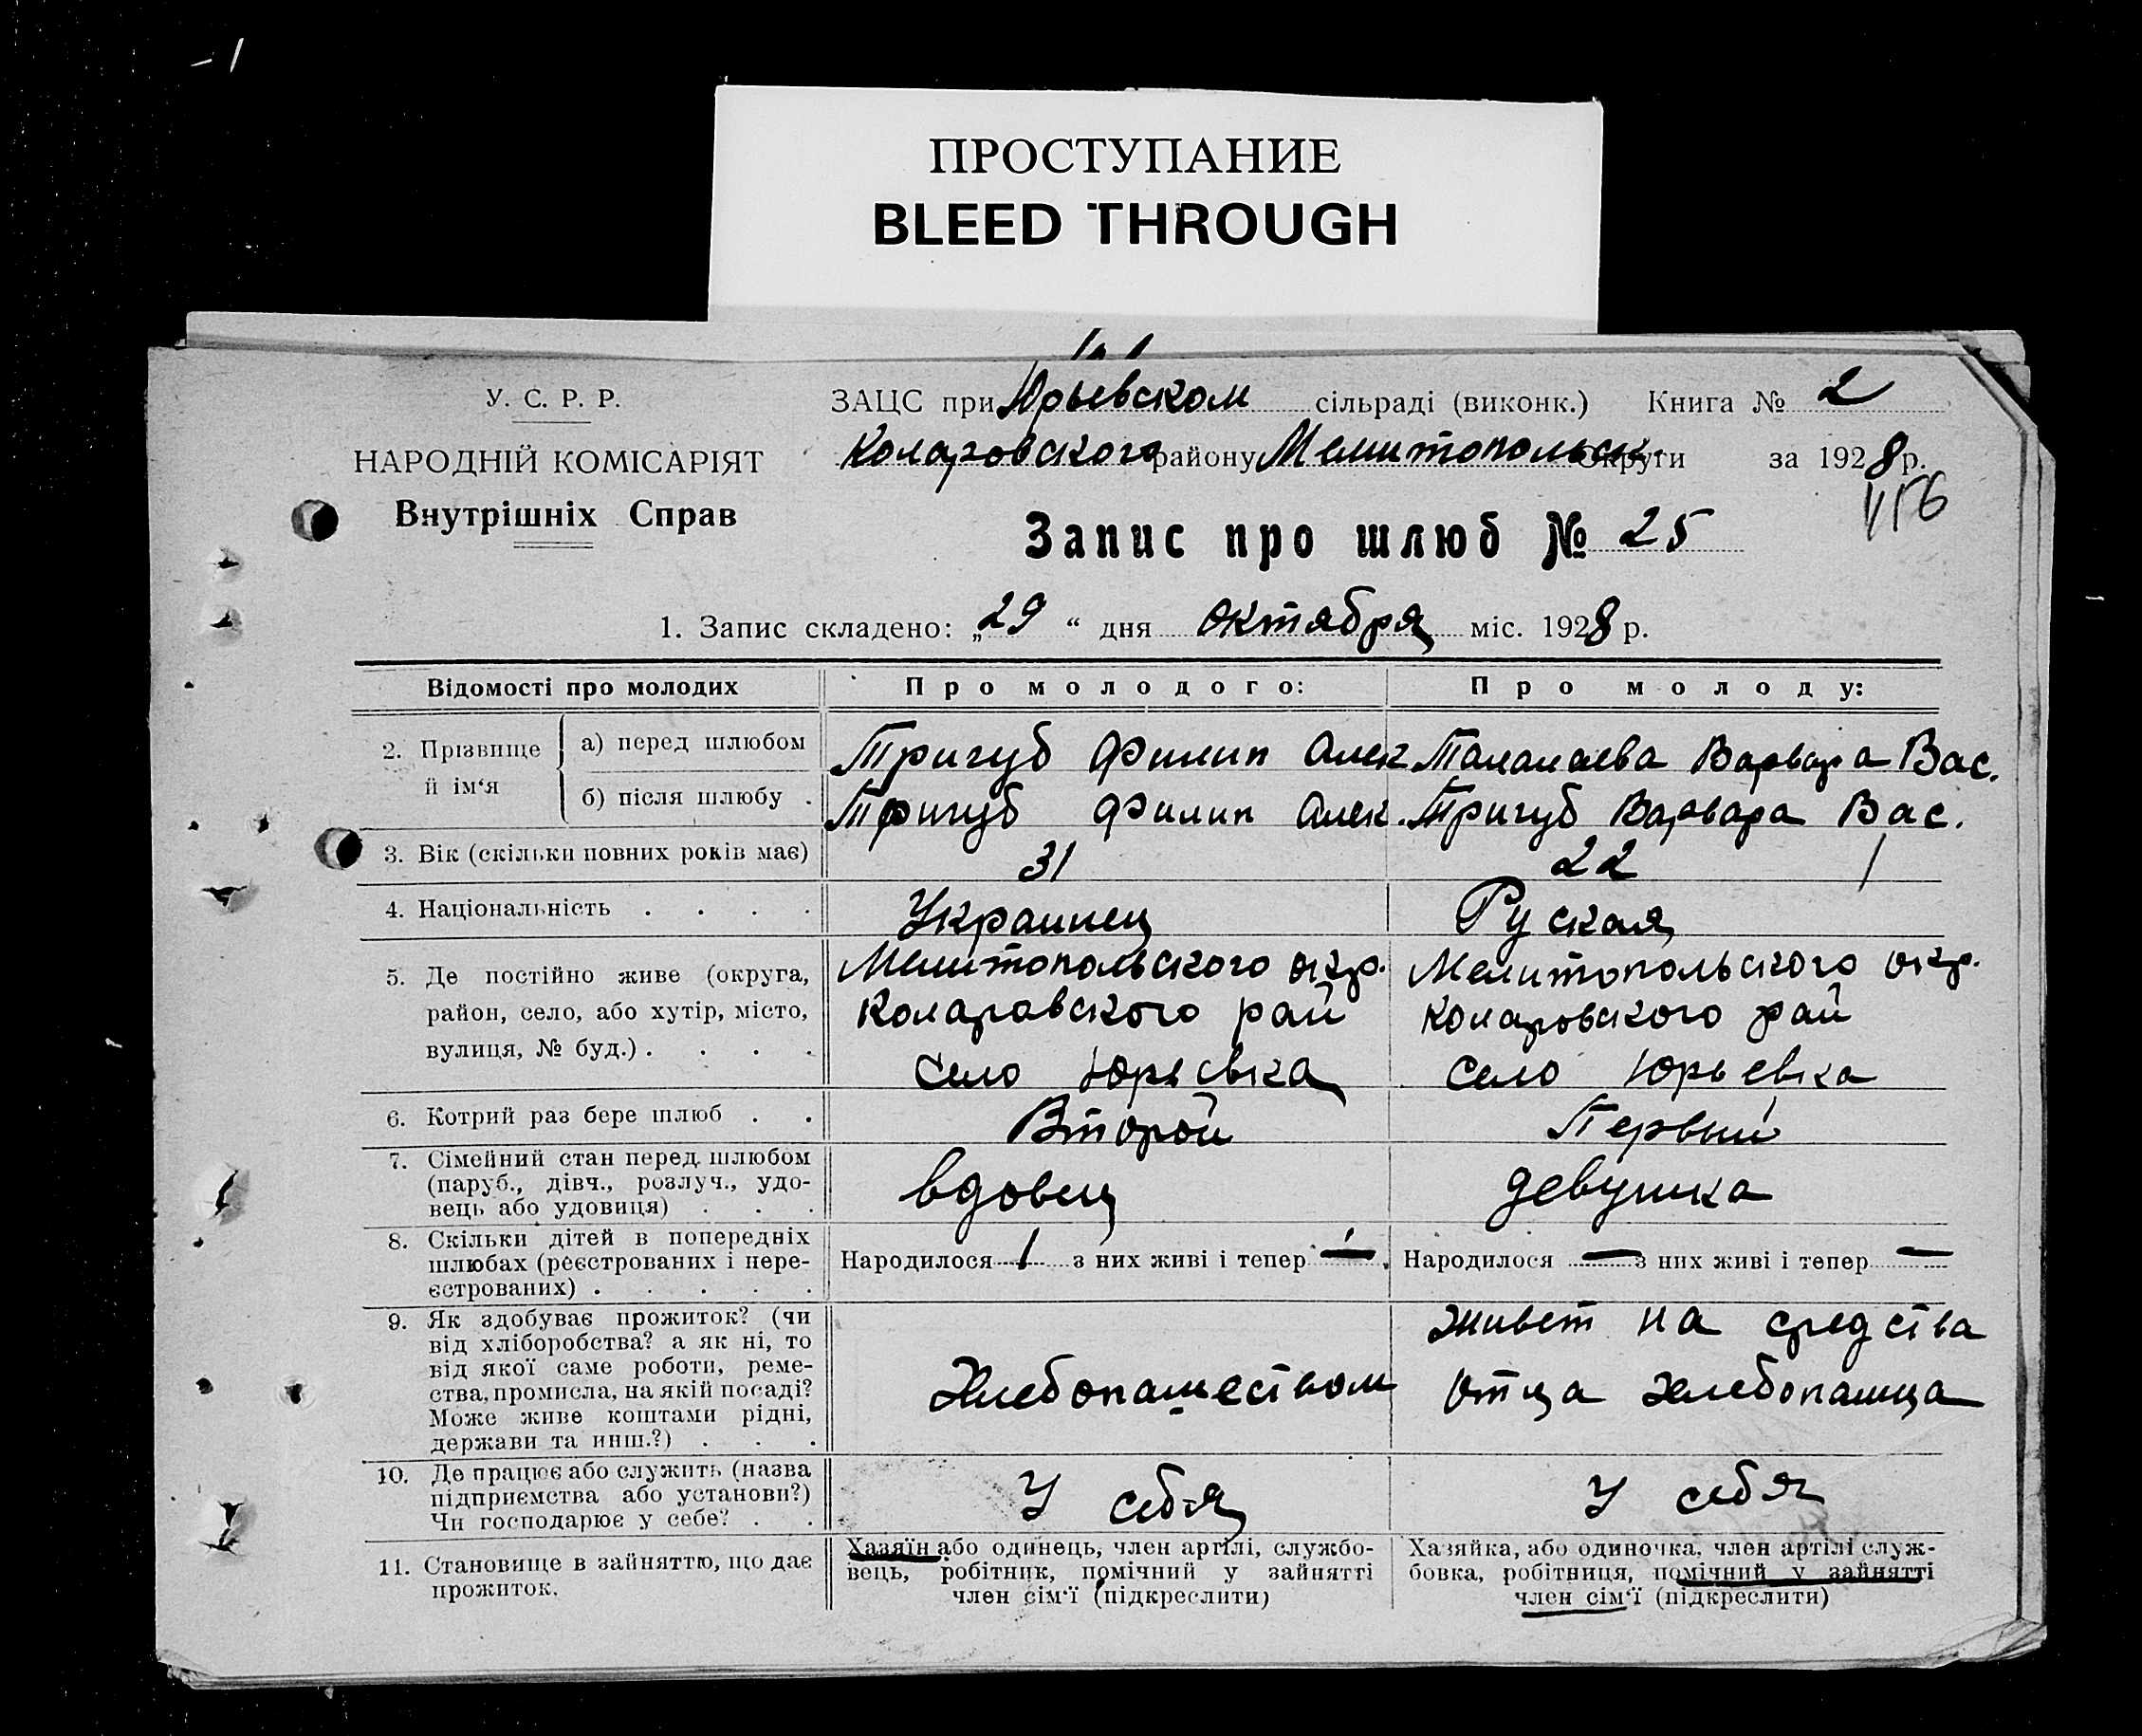 -1
ПРОСТУПАНИЕ
BLEED THROUGH
У. С. Р. Р.
НАРОДНІЙ КОМІСАРІЯТ
Внутрішніх Справ
ЗАЦС при Юрьевском сільраді (виконк.) Книга № 2
Коларовского району Мелитопольск. округи за 1928 р.
156
Запис про шлюб № 25
1. Запис складено: „29“ дня октября міс. 1928 р.
Відомості про молодих Про молодого: Про молоду:
2. Прізвище й ім‘я
а) перед шлюбом Тригуб Филип Алек Талалаева Варвара Вас.
б) після шлюбу . Тригуб Филип Алек. Тригуб Варвара Вас.
3. Вік (скільки повних років має) 31 22
4. Національність . . . . Украинец Руская
5. Де постійно живе (округа,
район, село, або хутір, місто,
вулиця, № буд.) . . . .
Мелитопольского окр.
Коларавского рай
Село Юрьевка
Мелитопольского окр.
Коларовского рай
Село Юрьевка
6. Котрий раз бере шлюб . . Второй Первый
7. Сімейний стан перед шлюбом
(паруб., дівч., розлуч., удо-
вець або удовиця) . . .
вдовец девушка
8. Скільки дітей в попередніх
шлюбах (реєстрованих і нере-
єстрованих) . . . . .
Народилося 1 з них живі і тепер —. Народилося — з них живі і тепер —
9. Як здобуває прожиток? (чи
від хліборобства? а як ні, то
від якої саме роботи, реме-
ства, промисла, на якій посаді?
Може живе коштами рідні,
держави та инш.?) . . .
Хлебопашеством
живет на средства
отца хлебопашца
10. Де працює або служить (назва
підприємства або установи?)
Чи господарює у себе? . .
У себя У себя
11. Становище в зайняттю, що дає
прожиток.
Хазяїн або одинець, член артілі, службо-
вець, робітник, помічний у зайнятті
член сім‘ї (підкреслити)
Хазяйка, або одиночка, член артілі служ-
бовка, робітниця, помічний у зайнятті
член сім‘ї (підкреслити)